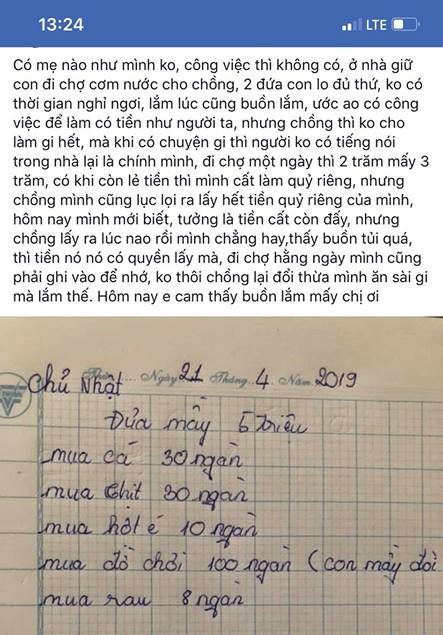 13:24
LTE
Có mẹ nào như mình ko, công việc thì không có, ở nhà giữ
con đi chợ cơm nước cho chồng, 2 đứa con lo đủ thứ, ko có
thời gian nghỉ ngơi, lắm lúc cũng buồn lắm, ước ao có công
việc để làm có tiền như người ta, nhưng chồng thì ko cho
làm gi hết, mà khi có chuyện gi thì người ko có tiếng nói
trong nhà lại là chính mình, đi chợ một ngày thì 2 trăm mấy 3
trăm, có khi còn lẻ tiền thì mình cất làm quỷ riêng, nhưng
chồng mình cũng lục lọi ra lấy hết tiền quỷ riêng của mình,
hôm nay mình mới biết, tưởng là tiền cất còn đấy, nhưng
chồng lấy ra lúc nao rồi mình chẳng hay,thấy buồn tủi quá,
thì tiền nó nó có quyền lấy mà, đi chợ hằng ngày mình cũng
phải ghi vào để nhớ, ko thôi chồng lại đổi thừa mình ăn sài gi
mà lắm thế. Hôm nay e cam thấy buồn lắm mấy chị ơi
Chủ Nhật Ngày 21 Tháng 4 Năm 2019
Đưa mầy 5 triêu
mua cá 30 ngàn
mua thit 30 ngàn
mua hôt é 10 ngàn
mua đồ chơi 100 ngàn (con mầy đòi
mua rau 8 ngàn